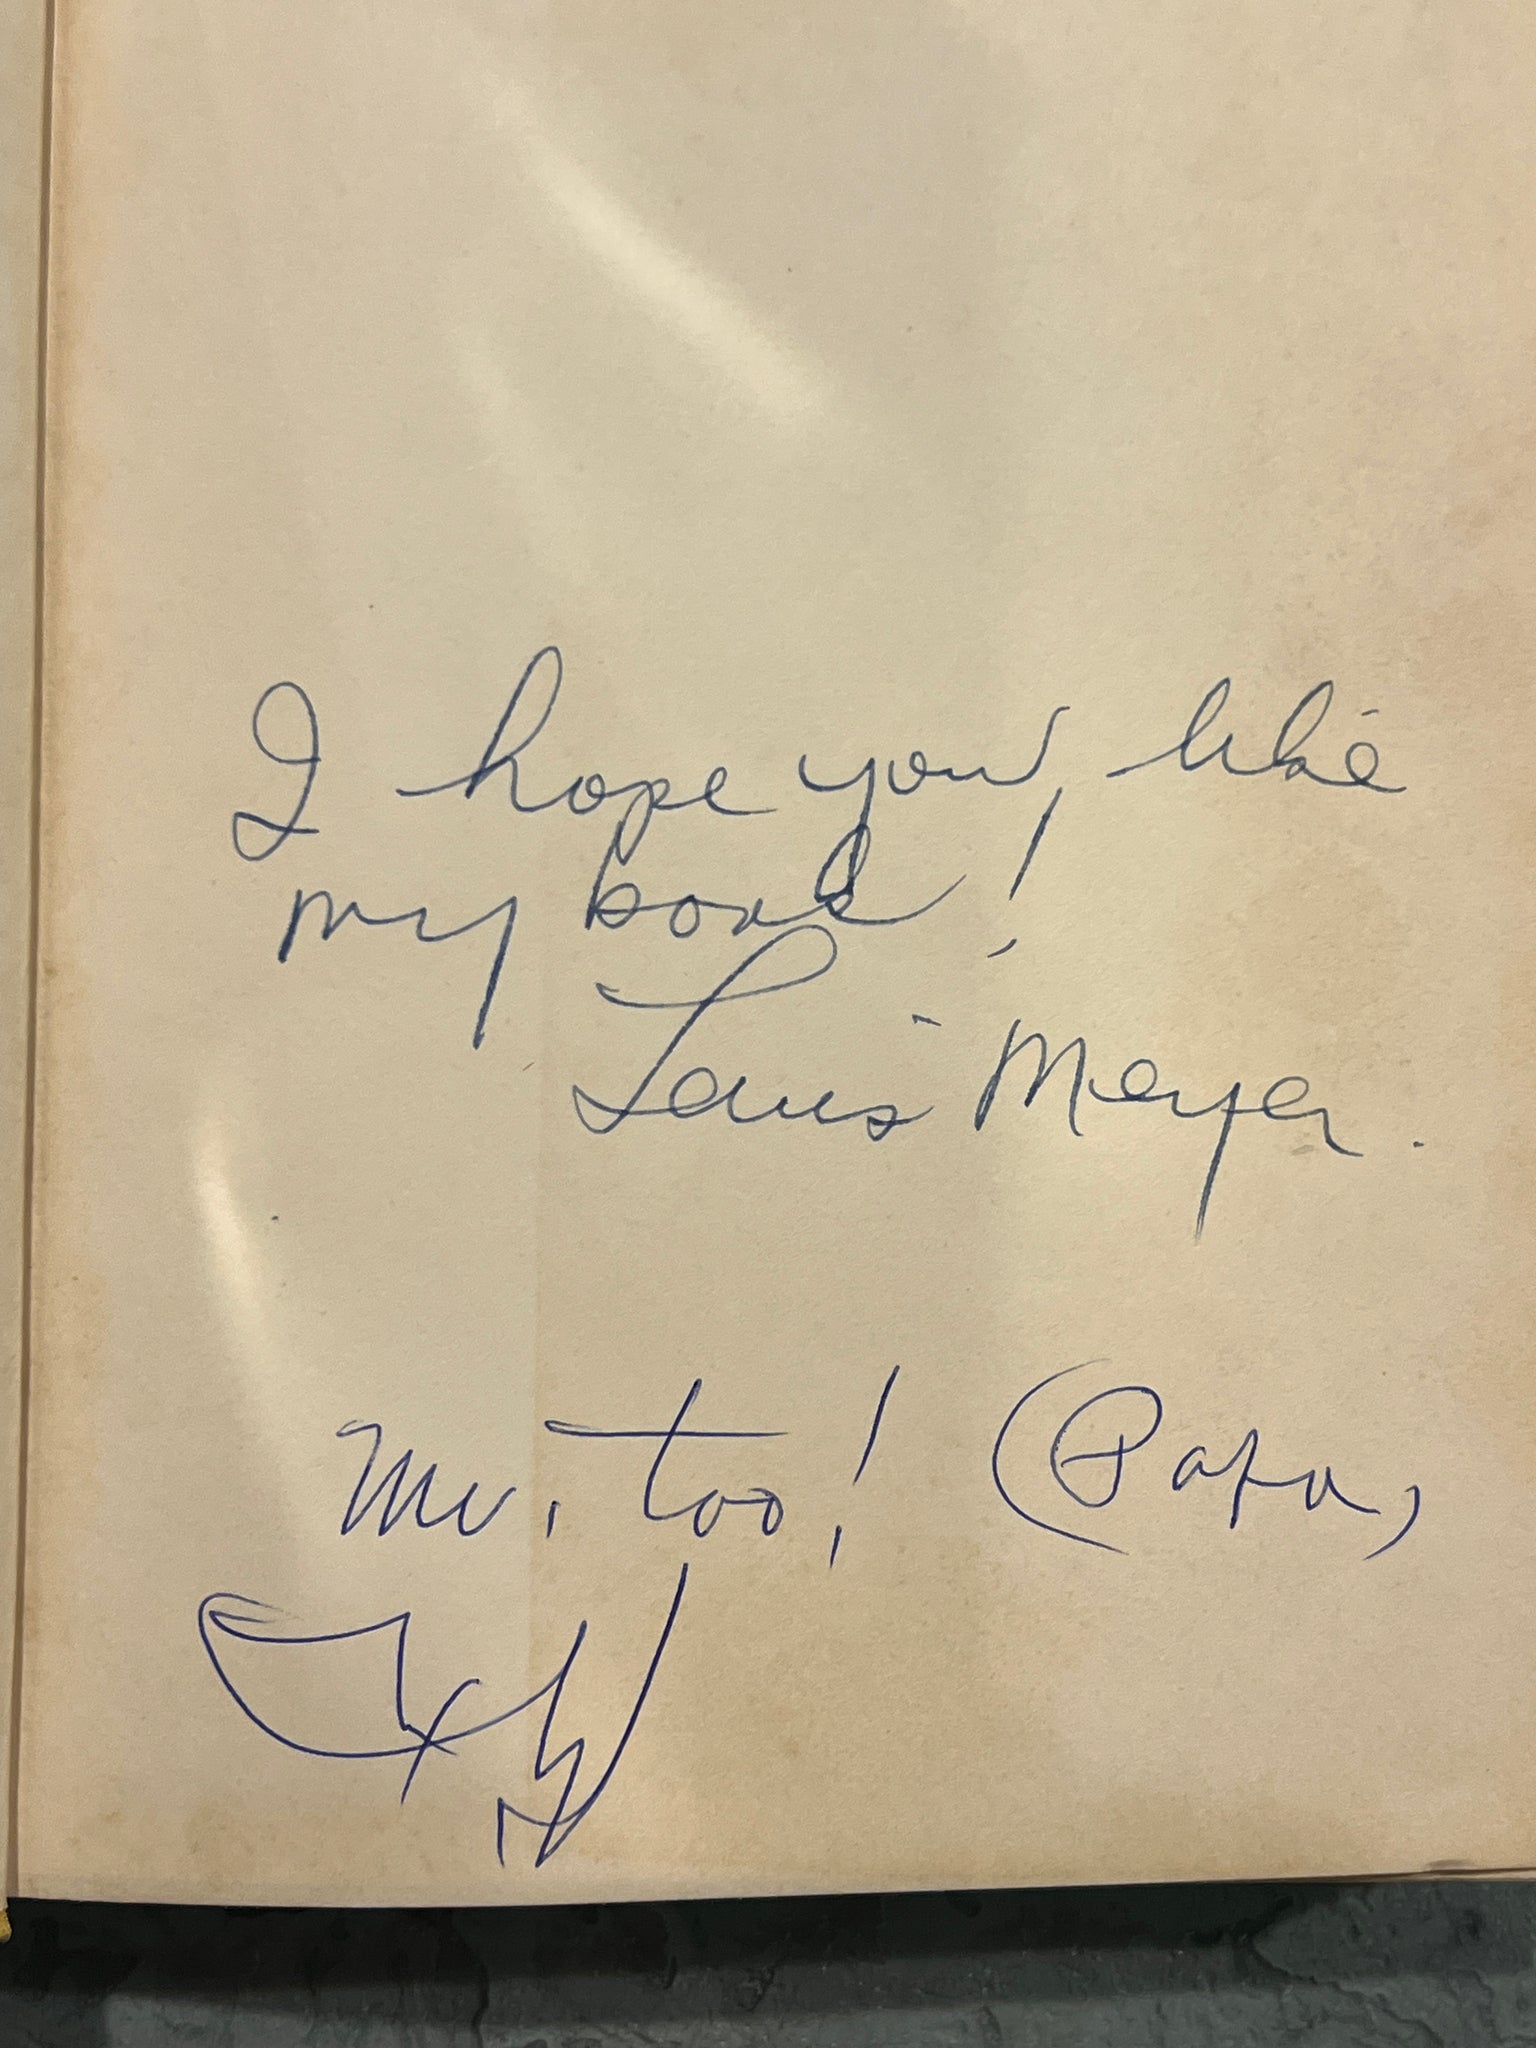 I hope you, like
my book!
Louis Meyer.
Me, too! (Papa,